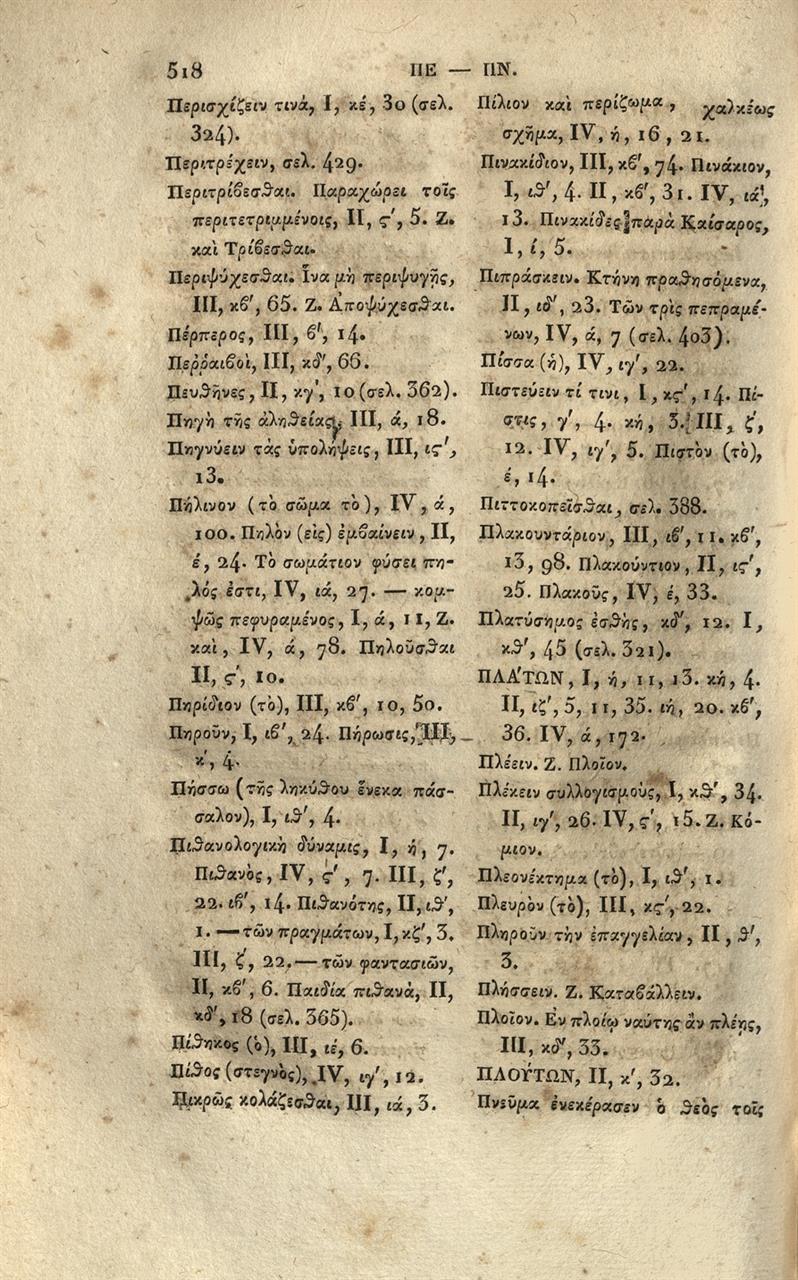 518
ΠΕ — ΠΝ.
Περισχίζειν τινὰ, Ι, κέ, 30 (σελ.
324).
Περιτρέχειν, σελ. 429.
Περιτρίβεσθαι. Παραχώρει τοῖς
περιτετριμμένοις, ΙΙ, ς΄, 5. Ζ.
καὶ Τρίβεσθαι.
Περιψύχεσθαι. Ἵνα μὴ περιψυγῇς,
ΙΙΙ, κβ΄, 65. Ζ. Ἀποψύχεσθαι.
Πέρπερος, ΙΙΙ, β΄, 14.
Περῥαιβοὶ, ΙΙΙ, κδ΄, 66.
Πευθῆνες, ΙΙ, κγ΄, 10 (σελ. 362).
Πηγὴ τῆς ἀληθείας, ΙΙΙ, ά, 18.
Πηγνύειν τὰς ὑπολήψεις, ΙΙΙ, ις΄,
13.
Πήλινον (τὸ σῶμα τὸ), ΙV, ά,
100. Πηλὸν (εἰς) ἐμβαίνειν, ΙΙ,
έ, 24. Τὸ σωμάτιον φύσει πη-
λός ἐστι, ΙV, ιά, 27. — κομ-
ψῶς πεφυραμένος, Ι, ά, 11, Ζ.
καὶ, ΙV, ά, 78. Πηλοῦσθαι
ΙΙ, ς΄, 10.
Πηρίδιον (τὸ), ΙΙΙ, κβ΄, 10, 50.
Πηροῦν, Ι, ιβ΄, 24. Πήρωσις, ΙΙΙ,
κ΄, 4.
Πήσσω (τῆς ληκύθου ἕνεκα πάσ-
σαλον), Ι, ιθ΄, 4.
Πιθανολογικὴ δύναμις, Ι, ή, 7.
Πιθανὸς, ΙV, ς΄, 7. ΙΙΙ, ζ΄,
22. ιβ΄, 14. Πιθανότης, ΙΙ, ιθ΄,
1. — τῶν πραγμάτων, Ι, κζ΄, 3.
ΙΙΙ, ζ΄, 22. — τῶν φαντασιῶν,
ΙΙ, κβ΄, 6. Παιδία πιθανὰ, ΙΙ,
κδ΄, 18 (σελ. 365).
Πίθηκος (ὁ), ΙΙΙ, ιέ, 6.
Πίθος (στεγνὸς), ΙV, ιγ΄, 12.
Πικρῶς κολάζεσθαι, ΙΙΙ, ιά, 3.
Πίλιον καὶ περίζωμα, χαλκέως
σχῆμα, ΙV, ή, 16, 21.
Πινακίδιον, ΙΙΙ, κβ΄, 74. Πινάκιον,
Ι, ιθ΄, 4. ΙΙ, κβ΄, 31. ΙV, ιά,
13. Πινακίδες παρὰ Καίσαρος,
Ι, ί, 5.
Πιπράσκειν. Κτήνη πραθησόμενα,
ΙΙ, ιδ΄, 23. Τῶν τρὶς πεπραμέ-
νων, ΙV, ά, 7 (σελ. 403).
Πίσσα (ἡ), ΙV, ιγ΄, 22.
Πιστεύειν τί τινι, Ι, κς΄, 14. Πί-
στις, γ΄, 4. κή, 3. ΙΙΙ, ζ΄,
12. ΙV, ιγ΄, 5. Πιστὸν (τὸ),
έ, 14.
Πιττοκοπεῖσθαι, σελ. 388.
Πλακουντάριον, ΙΙΙ, ιβ΄, 11. κβ΄,
13, 98. Πλακούντιον, ΙΙ, ις΄,
25. Πλακοῦς, ΙV, έ, 33.
Πλατύσημος ἐσθὴς, κδ΄, 12. Ι,
κθ΄, 45 (σελ. 321).
ΠΛΑΤΩΝ, Ι, ή, 11, 13. κή, 4.
ΙΙ, ιζ΄, 5, 11, 35. ιή, 20. κβ΄,
36. ΙV, ά, 172.
Πλέειν. Ζ. Πλοῖον.
Πλέκειν συλλογισμοὺς, Ι, κθ΄, 34.
ΙΙ, ιγ΄, 26. ΙV, ς΄, 15. Ζ. Κό-
μιον.
Πλεονέκτημα (τὸ), Ι, ιθ΄, 1.
Πλευρὸν (τὸ), ΙΙΙ, κς΄, 22.
Πληροῦν τὴν ἐπαγγελίαν, ΙΙ, θ΄,
3.
Πλήσσειν. Ζ. Καταβάλλειν.
Πλοῖον. Ἐν πλοίῳ ναύτης ἂν πλέῃς,
ΙΙΙ, κδ΄, 33.
ΠΛΟΥΤΩΝ, ΙΙ, κ΄, 32.
Πνεῦμα ἐνεκέρασεν ὁ θεὸς τοῖς